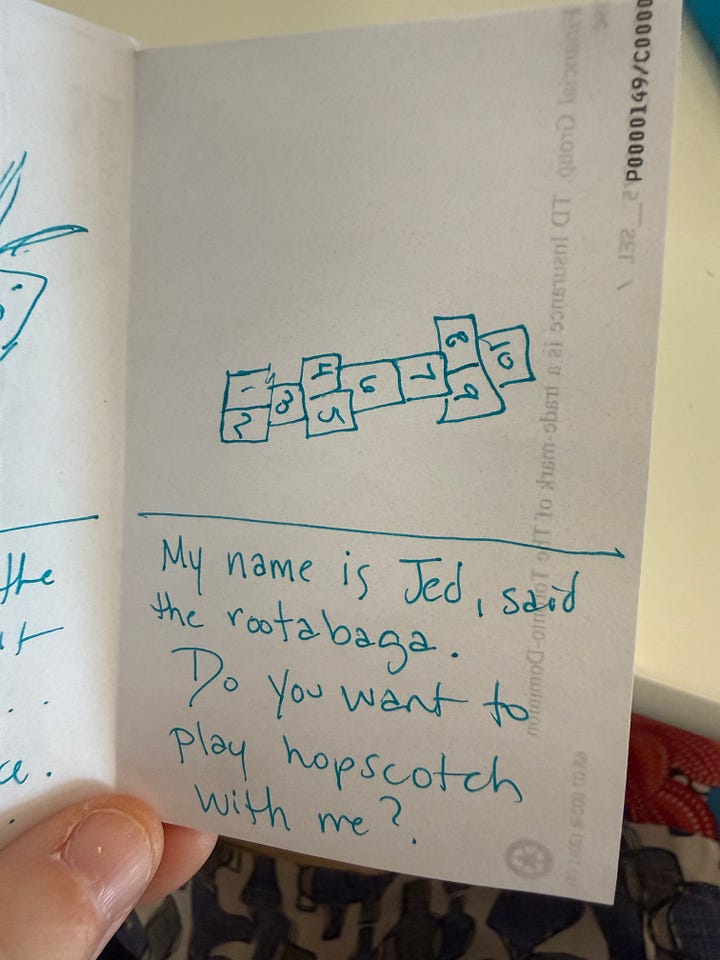 the
P0000149/C0000
TD Insurance is a trade-mark of The Toronto-Dominion
SEL /
1 2 3 4 5 6 7 8 9 10
My name is Jed, said
the rootabaga.
Do you want to
play hopscotch
with me?